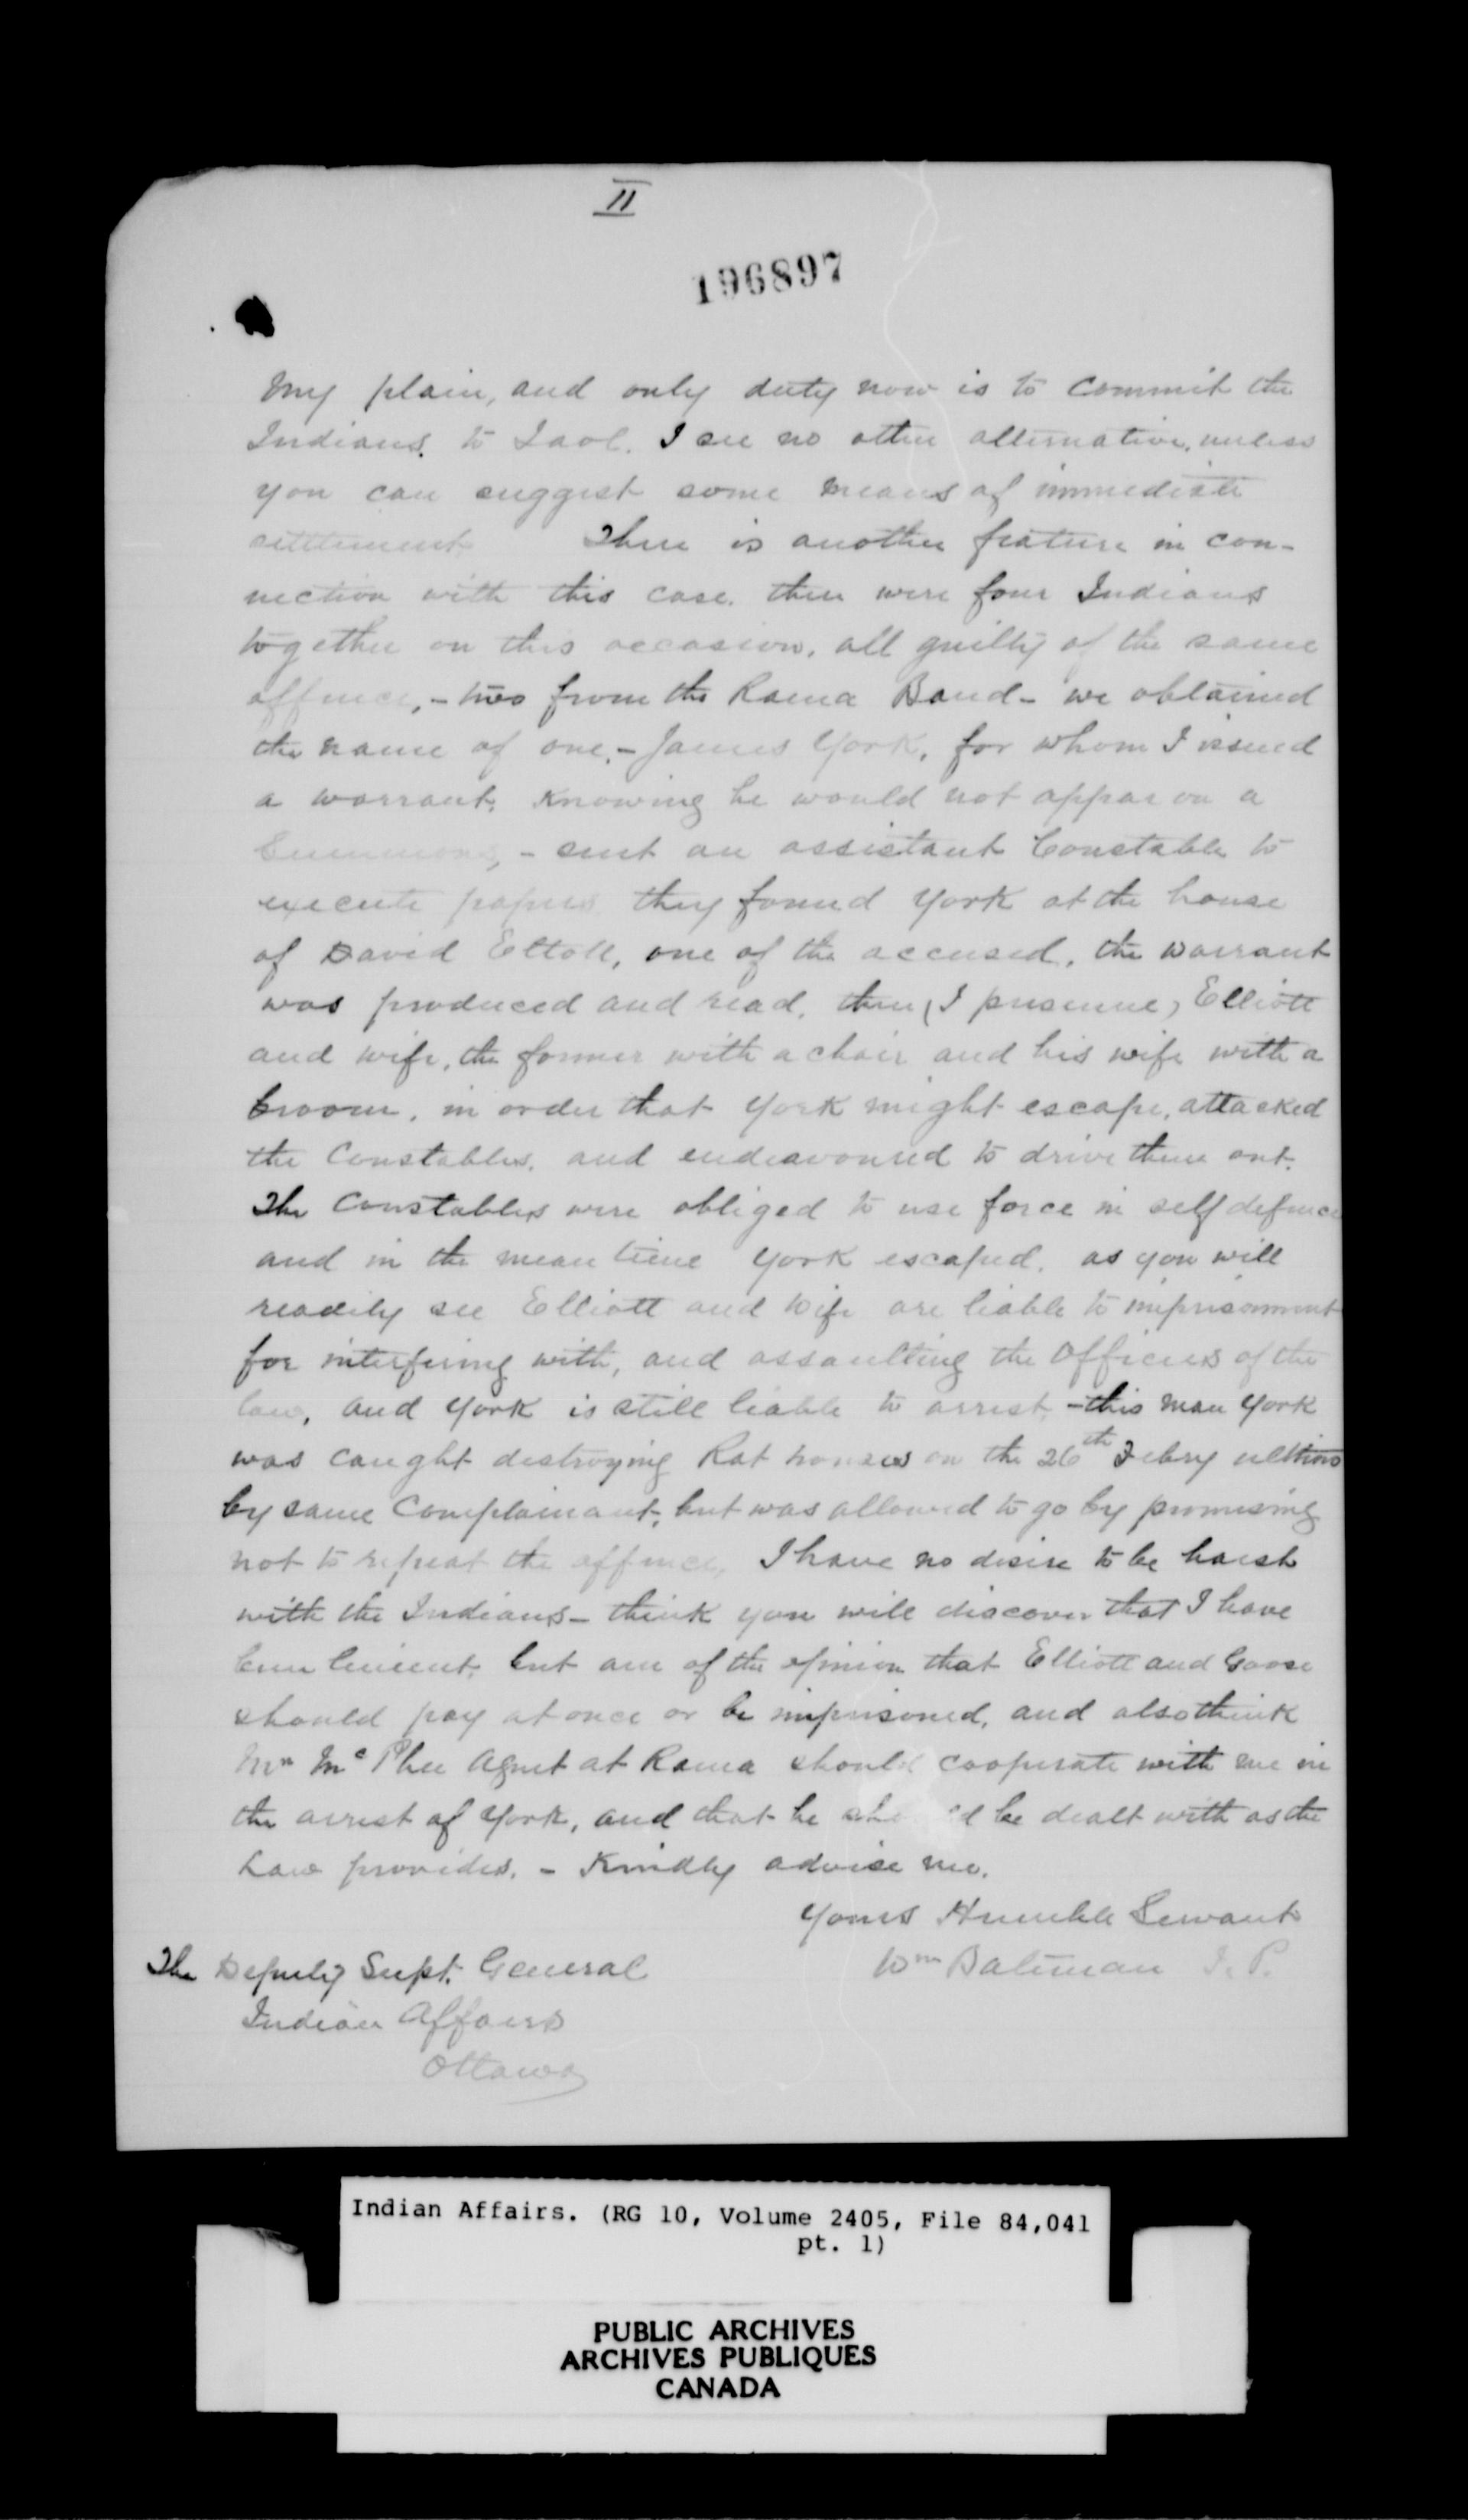 II
196897
My plain, and only duty now is to commit the
Indians. to Gaol. I see no other alternative, unless
you can suggest some means of immediate
settlement There is another feature in con-
nection with this case. there were four Indians
together on this occasion, all guilty of the same
offence, - two from the Rama Band - we obtained
the name of one, - James York, for whom I issued
a warrant, Knowing he would not appear on a
Summons, - sent an assistant Constable to
execute papers they found York at the house
of David Eltott, one of the accused, the warrant
was produced and read, then (I presume) Elliott
and wife, the former with a chair and his wife with a
broom, in order that York might escape, attacked
the Constables, and endeavoured to drive them out.
The Constables were obliged to use force in self defence
and in the mean time York escaped. as you will
readily see Elliott and wife are liable to imprisonment
for interfering with, and assaulting the Officers of the
law, and York is still liable to arrest, - this man York
was caught destroying Rat houses on the 26th Febry ultimo
by same Complainant, but was allowed to go by promising
not to repeat the offence, I have no desire to be harsh
with the Indians - think you will discover that I have
been lenient, but am of the opinion that Elliott and Goose
should pay at once or be imprisoned, and also think
Mr McPhee Agent at Rama should cooperate with me in
the arrest of York, and that he should be dealt with as the
Law provides. - Kindly advise me.
Yours Humble Servant
Wm Bateman J. P.
The Deputy Supt. General
Indian Affairs
Ottawa
Indian Affairs. (RG 10, Volume 2405, File 84,041
pt. 1)
PUBLIC ARCHIVES
ARCHIVES PUBLIQUES
CANADA